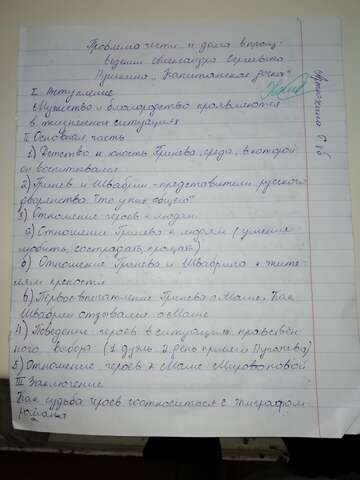 Проблема чести и долга в произ-
ведении Александра Сергеевича
Пушкина „Капитанская дочка"
I. Вступление
Мужество и благородство проявляются
в жизненных ситуациях
II Основная часть
1) Детство и юность Гринёва, среда, в которой
он воспитывался
2) Гринев и Швабрин - представители русского
дворянства. Что у них общего?
3) Отношение героев к людям
а) Отношение Гринёва к людям (умение
любить, сострадать, прощать)
б) Отношение Гринева и Швабрина к жите-
лям крепости
в) Первое впечатление Гринева о Маше. Как
Швабрин отзывался о Маше
4) Поведение героев в ситуациях нравствен-
ного выбора (1. дуэль 2. день приезда Пугачева)
5) Отношение героев к Маше Мироновой
III Заключение
Как судьба героев соотносится с эпиграфом
романа
8б